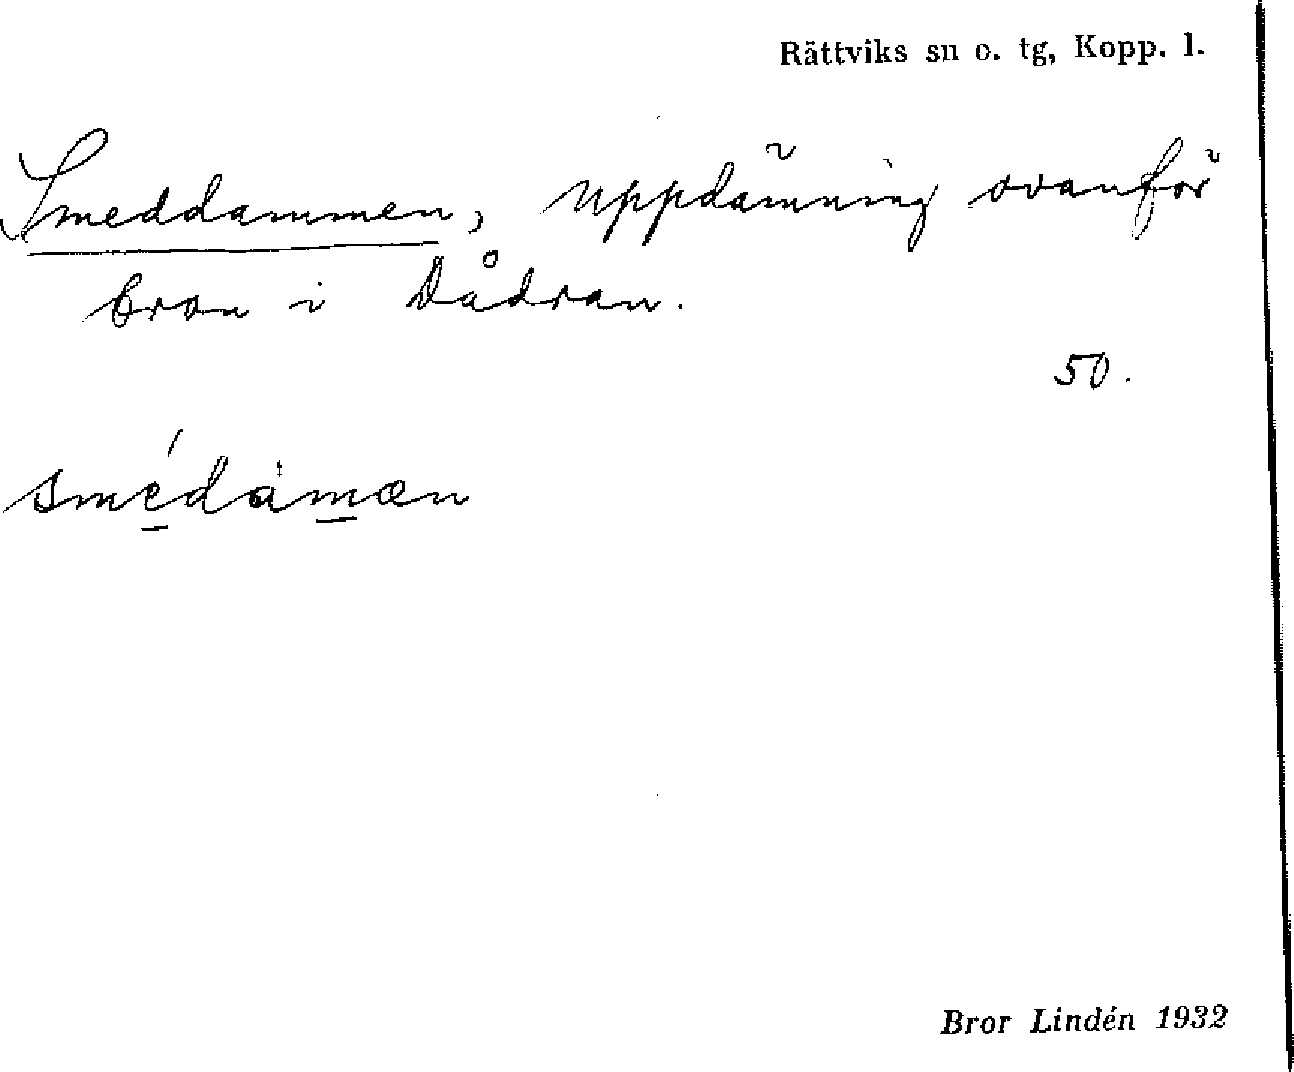 Rättviks sn o. tg, Kopp. l.
Smeddammen, uppdämning ovanför
bron i Dådran.
50.
smédàmæn
Bror Lindén 1932